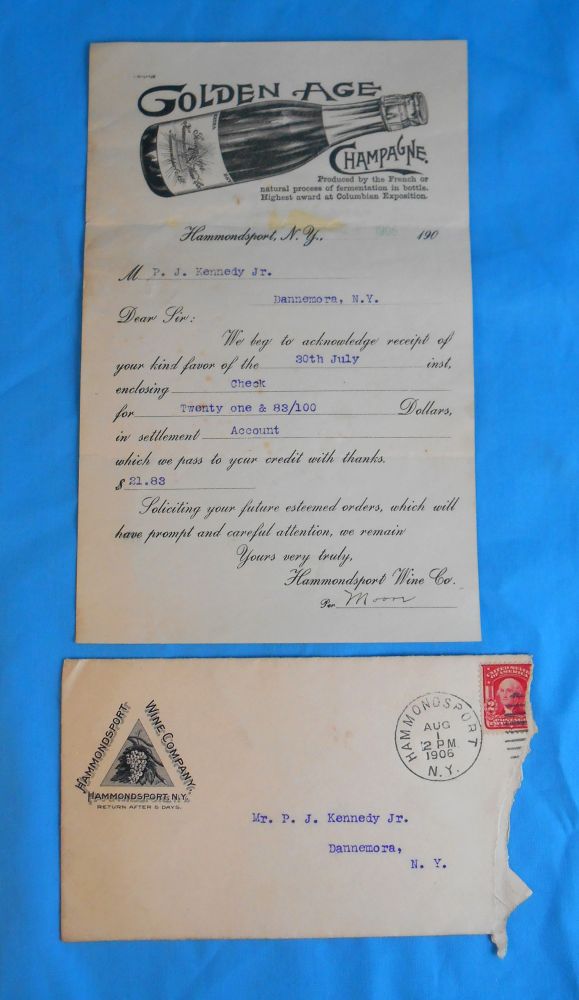 GOLDEN AGE
CHAMPAGNE.
Produced by the French or
natural process of fermentation in bottle.
Highest award at Columbian Exposition.
Hammondsport, N. Y., 1906 190
M P. J. Kennedy Jr.
Dannemora, N.Y.
Dear Sir:
We beg to acknowledge receipt of
your kind favor of the 30th July inst,
enclosing Check
for Twenty one & 83/100 Dollars,
in settlement Account
which we pass to your credit with thanks.
$ 21.83
Soliciting your future esteemed orders, which will
have prompt and careful attention, we remain
Yours very truly,
Hammondsport Wine Co.
Per Moore
HAMMONDSPORT WINE COMPANY
HAMMONDSPORT, N.Y.
RETURN AFTER 5 DAYS.
HAMMONDSPORT
AUG
1
12 PM
1906
N.Y.
UNITED STATES
OF AMERICA
2
POSTAGE
Mr. P. J. Kennedy Jr.
Dannemora,
N. Y.